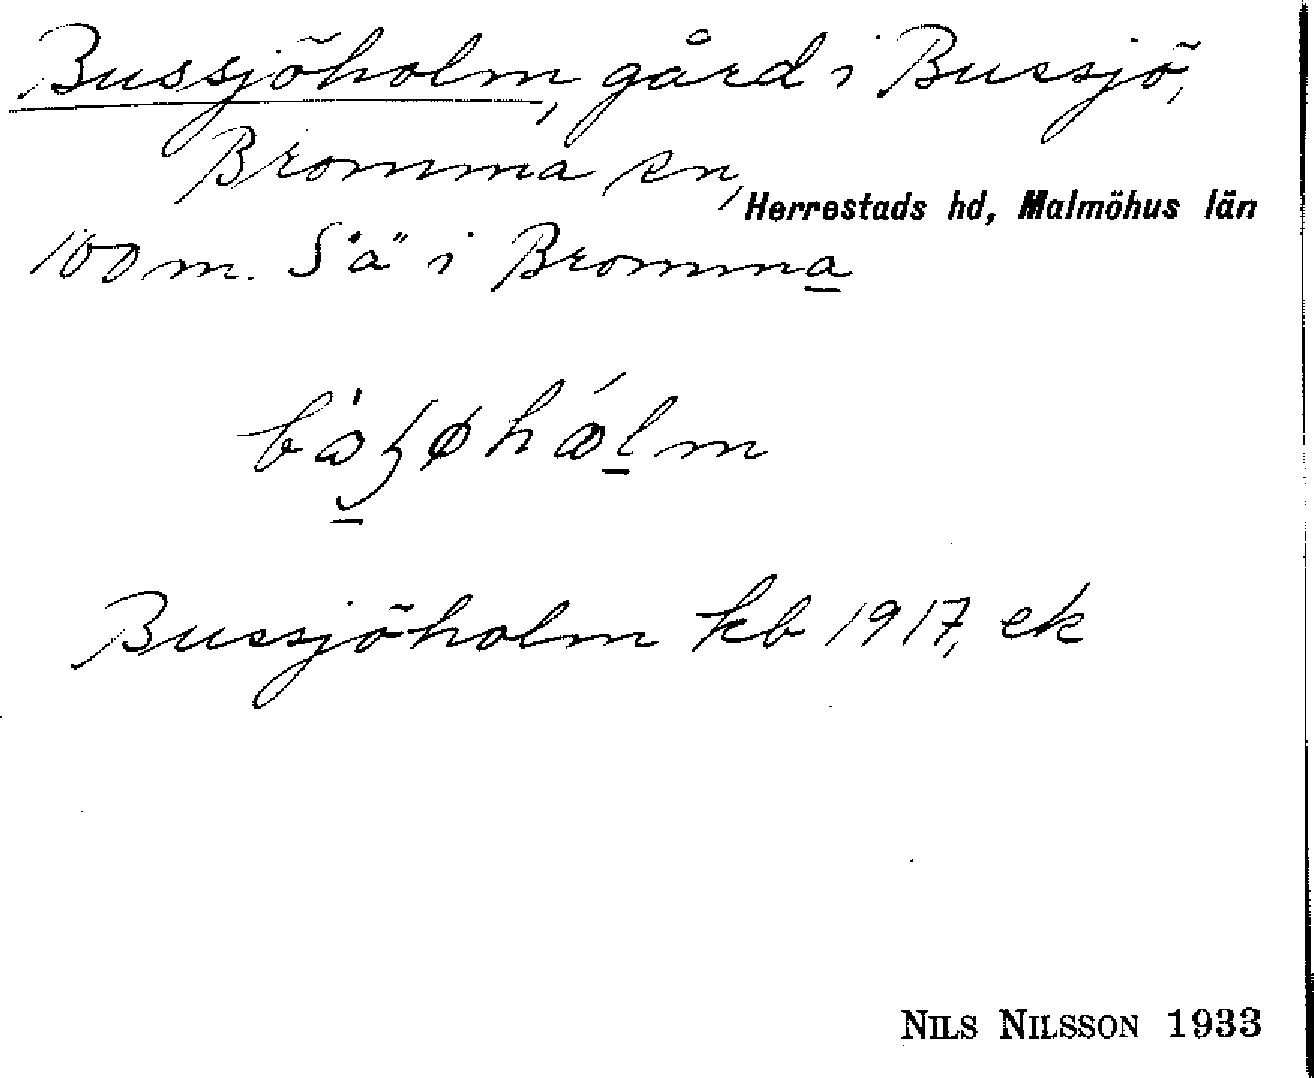 Bussjöholm, gård i Bussjö,
Bromma sn, Herrestads hd, Malmöhus län
100 m. S "a" i Bromma
Bussjöholm kb 1917, ek
NILS NILSSON 1933